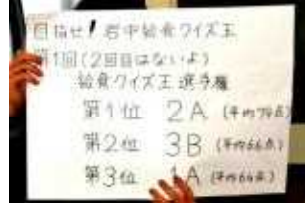 目指せ!岩中給食クイズ王
第1回(2回目はないよ)
給食クイズ王選手権
第1位 2A (平均70点)
第2位 3B (平均66点)
第3位 1A (平均64点)